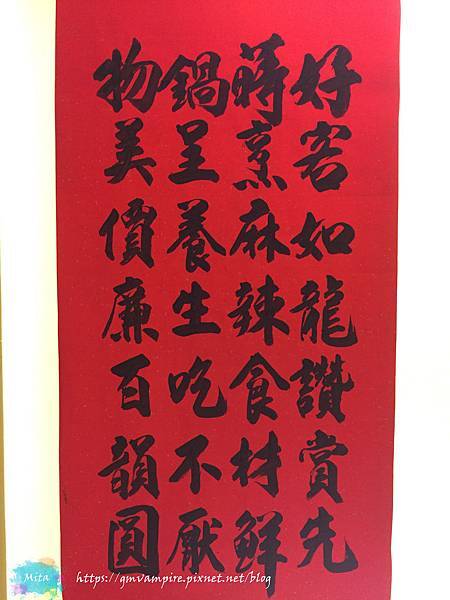 好客如龍讚賞先
蔣烹麻辣食材鮮
鍋呈養生吃不厭
物美價廉百韻圓
Mita
https://gmvampire.pixnet.net/blog